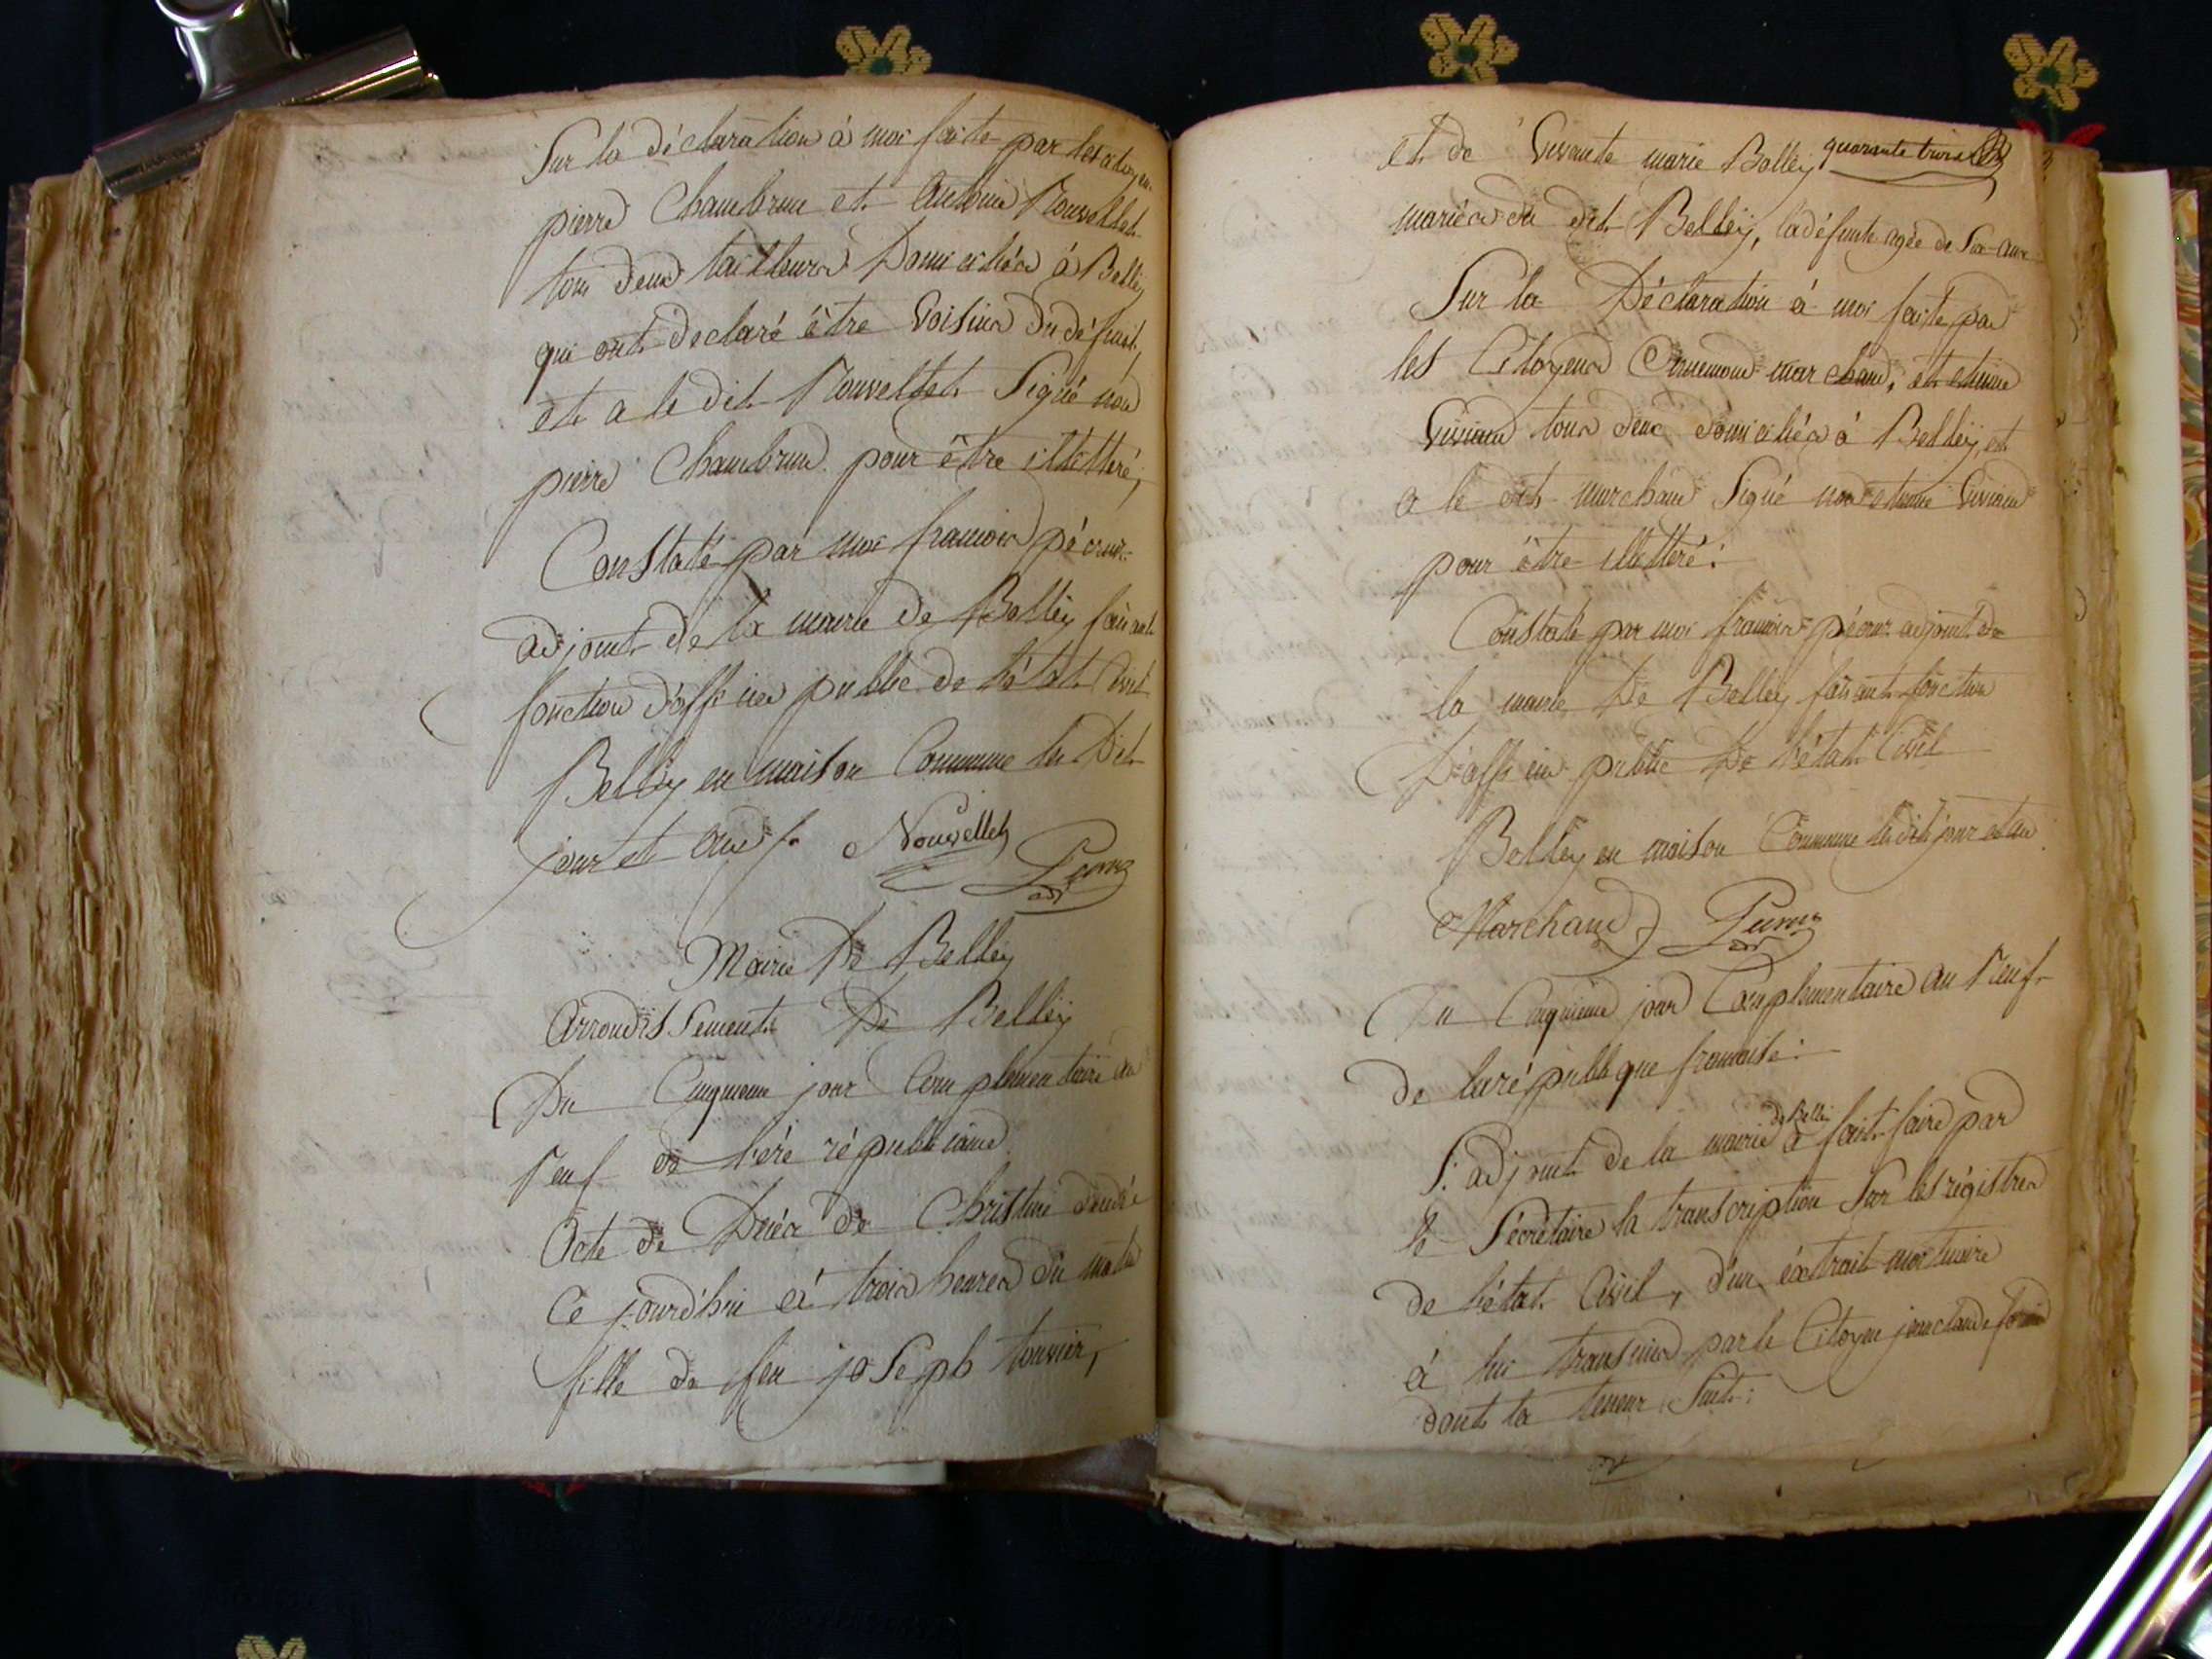 Sur la déclaration à moi faite par les citoyens
pierre Chambrun et Antoine Nouvellet
tous deux tailleurs Domiciliés à Belley
qui ont declaré être Voisins du défunt
et a le dit Nouvellet Signé non
pierre Chambrun pour être illettéré,
Constaté par moi francois
adjoint de la mairie de Belley faisant
fonction d'officier public de l'état Civil
Belley en maison Commune les Dit
jour et an Nouvellet
Mairie De Belley
Arrondissement De Belley
Du Cinquieme jour Complementaire an
Neuf de l'éré républicaine
Acte de Décés de Christine
Ce jourd'hui à trois heures du matin
fille de feu joseph
quarante trois
et de Vivante marie Bolley
mariés du dit Belley, la défunte agée de Six ans
Sur la Déclaration à moi faite par
les Citoyens marchand, et
tous deux domiciliés à Belley, et
a le dit marchand Signé non
pour être illettéré:
Constaté par moi francois adjoint de
la mairie De Belley faisant fonction
D'officier public De l'état Civil
Belley en maison Commune les dit jour et an
Marchand
Du Cinquieme jour Complementaire an Neuf
de la république francaise:
L'adjoint de la mairie de Belley à fait faire par
le Sécrétaire la transcription Sur les régistres
de l'état Civil, d'un éxtrait mortuaire
à lui transmis par le Citoyen jean claude
dont la teneur Suit: